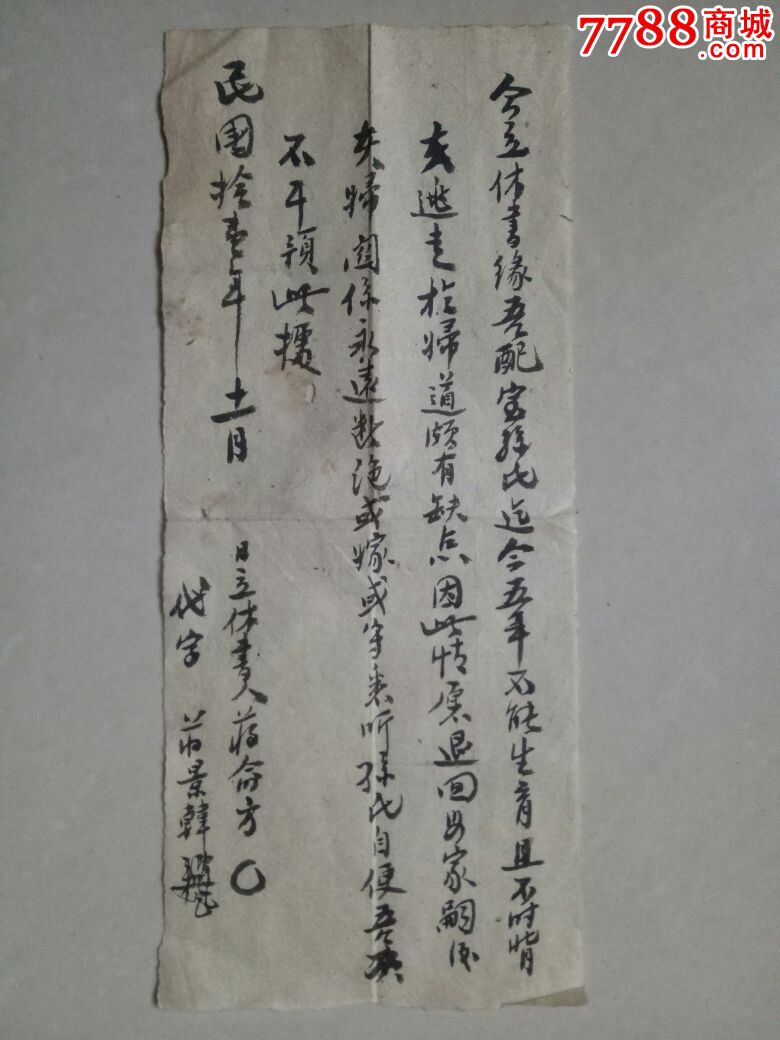 7788商城
.com
今立休书缘吾配室孫氏迄今五年不能生育且不时背
夫逃走於婦道頗有缺点因此情愿退回母家嗣後
夫婦関係永遠断绝或嫁或守悉听孫氏自便吾决
不干預此據
民國拾壹年十一月
日立休書人蒋命方〇
代字 蒋景韓